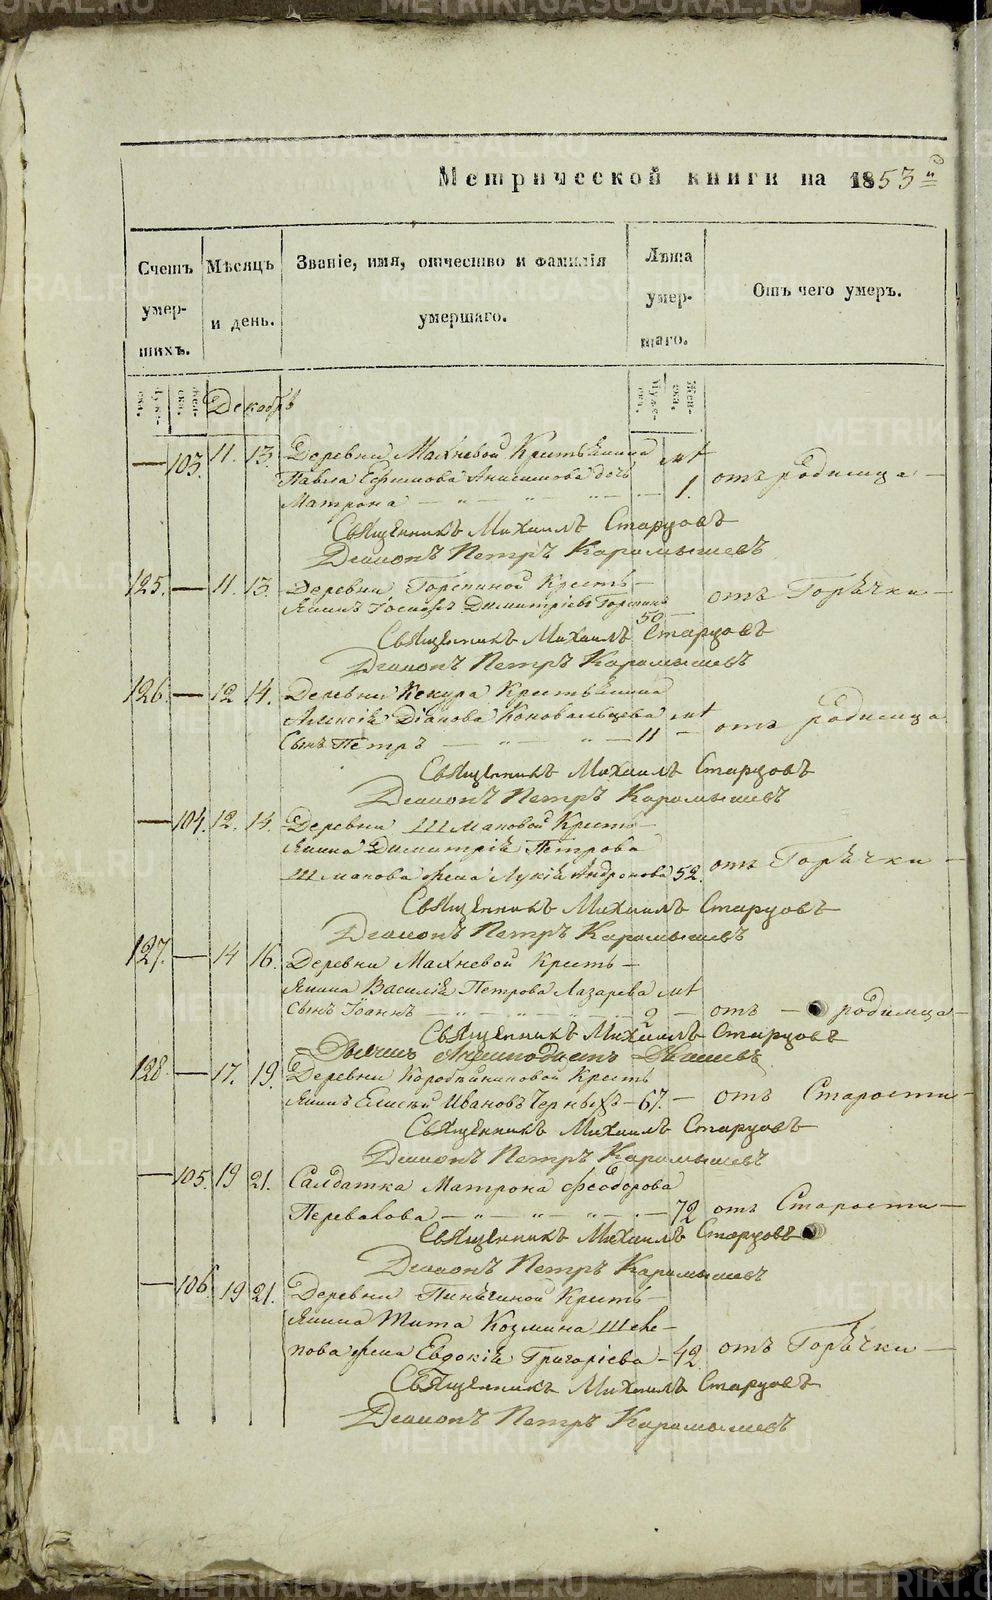 Метрической книги на 1853й
Счетъ умер- шихъ.
Мѣсяцъ и день.
Званіе, имя, отчество и фамилія умершаго.
Лѣта умер- шаго.
Отъ чего умеръ.
Муже- ска. Жен- ска. Декабрь Муже- ска. Жен- ска.
— 103. 11. 13. Деревни Махневой Крестьянина
Павла Ефимова Анисимова дочь
Матрона — " — " — " — 1. отъ родимца —
Священникъ Михаилъ Старцовъ
Діаконъ Петръ Карамышевъ
125. — 11. 13. Деревни Кресть-
янинъ Іосифъ Димитріевъ 50 — отъ Горячки —
Священникъ Михаилъ Старцовъ
Діаконъ Петръ Карамышевъ
126. — 12 14. Деревни Кокура Крестьянина
Алексія Коновальцева
Сынъ Петръ — " — " — 11 — отъ родимца
Священникъ Михаилъ Старцовъ
Діаконъ Петръ Карамышевъ
— 104. 12. 14. Деревни Шмаковой Кресть-
янина Димитрія Петрова
Шмакова жена Лукія Андронова 52. отъ Горячки —
Священникъ Михаилъ Старцовъ
Діаконъ Петръ Карамышевъ
127. — 14 16. Деревни Махневой Кресть-
янина Василія Петрова Лазарева
Сынъ Іоаннъ — " — " — 9 — отъ — родимца —
Священникъ Михаилъ Старцовъ
128 — 17. 19. Деревни Кресть-
янинъ Елисей Ивановъ Черныхъ — 67. — отъ Старости —
Священникъ Михаилъ Старцовъ
Діаконъ Петръ Карамышевъ
— 105. 19 21. Салдатка Матрона Феодорова
Перевалова — " — " — " — 72 отъ Старости —
Священникъ Михаилъ Старцовъ
Діаконъ Петръ Карамышевъ
— 106. 19 21. Деревни Кресть-
янина Тита Козмина Щепе-
нова жена Евдокія Григоріева — 42 отъ Горячки —
Священникъ Михаилъ Старцовъ
Діаконъ Петръ Карамышевъ
METRIKI.GASO-URAL.RU